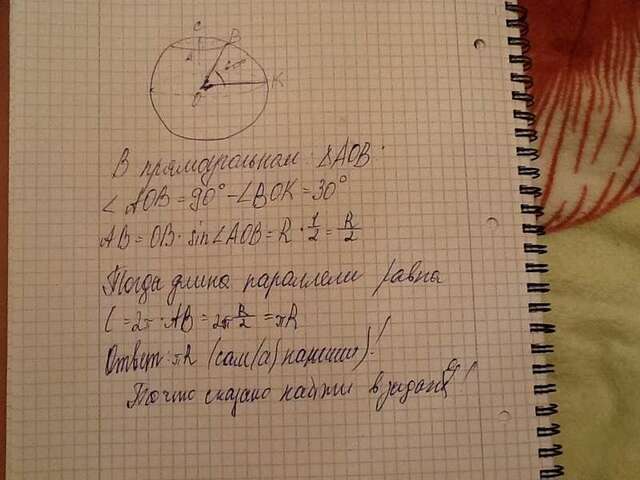 C
B
K
O
В прямоугольном ΔAOB:
∠AOB = 90° - ∠BOK = 30°
AB = OB · sin∠AOB = R · 1/2 = R/2
Тогда длина параллели равна
C = 2π · AB = 2π R/2 = πR
Ответ: πR (сам(а) напиши)!
Точно сказано найти в задаче!